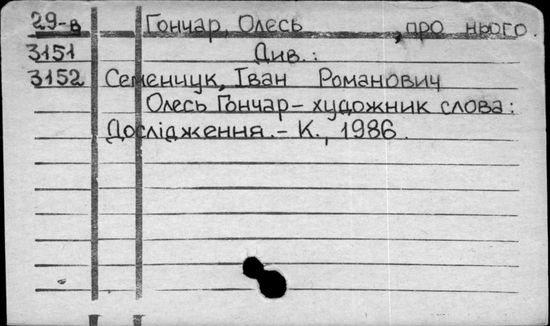 29-в Гончар, Олесь , про нього.
3151 Див.:
3152 Семенчук, Іван Романович
Олесь Гончар – художник слова:
Дослідження. – К., 1986.